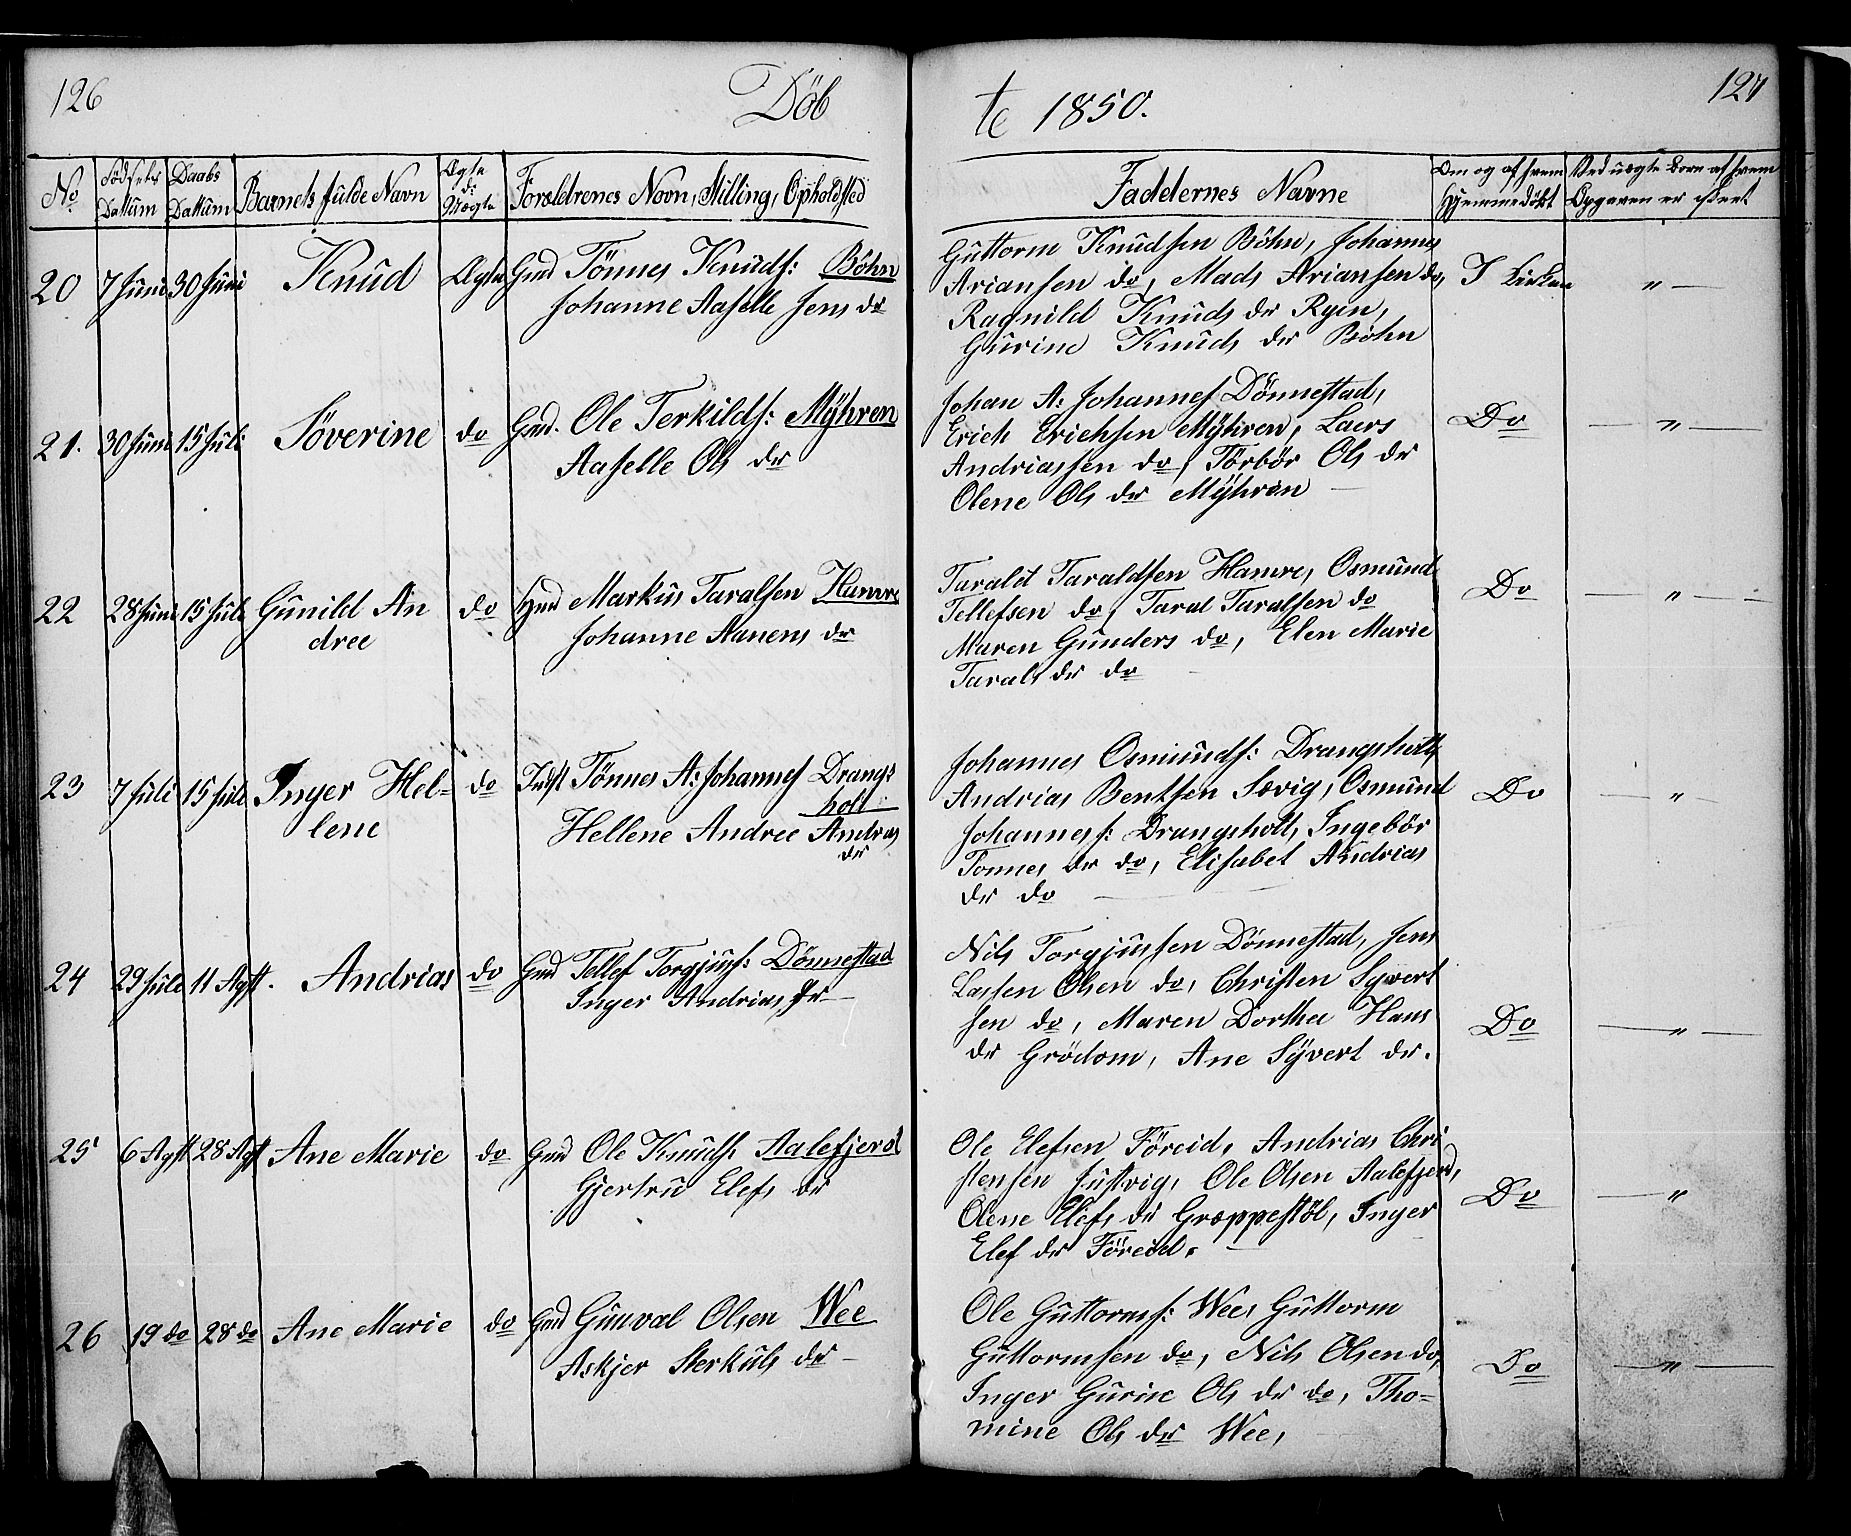 126
Döb
te 1850.
127
No
Födsels Dattum
Daabs Dattum
Barnets fulde Navn
Ægte el: Uægte
Foreldrenes Navn, Stilling, Opholdsted
Faddernes Navne
Om og af hvem Hjemmedöbt
Ved uægte Born af hvem Opgaven er skeet
20 7 Juni 30 Juni Knud Ægte Gmd Tönnes Knuds: Böhn
Johanne Aaselle Jens dr
Guttorm Knudsen Böhn, Johannes
Ariansen do, Mads Ariansen do,
Ragnild Knuds dr Ryen,
Gurine Knuds dr Böhn
I Kirken "
21. 30 Juni 15 Juli Söverine do Gmd. Ole Terkilds: Myhren
Aaselle Ols dr
Johan A: Johannes Dönnestad,
Erich Erichsen Myhren, Laers
Andriassen do, Törbör Ols dr
Olene Ols dr Myhren
Do "
22 28 Juni 15 Juli Gunild An
dree
do Hmd Markus Taralsen Hamre
Johanne Aanens dr
Tarald Taraldsen Hamre, Osmund
Tellefsen do, Taral Taralsen do
Maren Gunders do, Elen Marie
Tarals dr do
Do "
23 7 Juli 15 Juli Inger Hel-
lene
do Indst Tönnes A: Johannes Drangs:
holt
Hellene Andree Andras
dr
Johannes Osmunds: Drangsholt,
Andrias Bentsen Sævig, Osmund
Johanness: Drangsholt, Ingebör
Tonnes dr do, Elisabet Andrias
dr do
Do "
24 29 Juli 11 Agst. Andrias do Gmd Tellef Torgjus: Dönnestad
Inger Andrias dr
Nils Torgjussen Dönnestad, Jens
Lassen Olsen do, Christen Syvert
sen do, Maren Dorthea Hans
dr Grödom, Ane Syvert dr.
Do "
25 6 Agst 28 Agst Ane Marie do Gmd Ole Knuds. Aalefjerd
Gjertru Elefs dr
Ole Elefsen Föreid, Andrias Chri
stensen Justvig, Ole Olsen Aalefjerd,
Olene Elefs dr Græppestöl, Inger
Elef dr Föreid.
Do "
26 19 do 28 do Ane Marie do Gmd Gunval Olsen Wee
Askjer Sterkuls dr
Ole Guttorms: Wee, Guttorm
Guttormsen do, Nils Olsen do,
Inger Gurine Ols dr do, Tho-
mine Ols dr Wee,
Do "